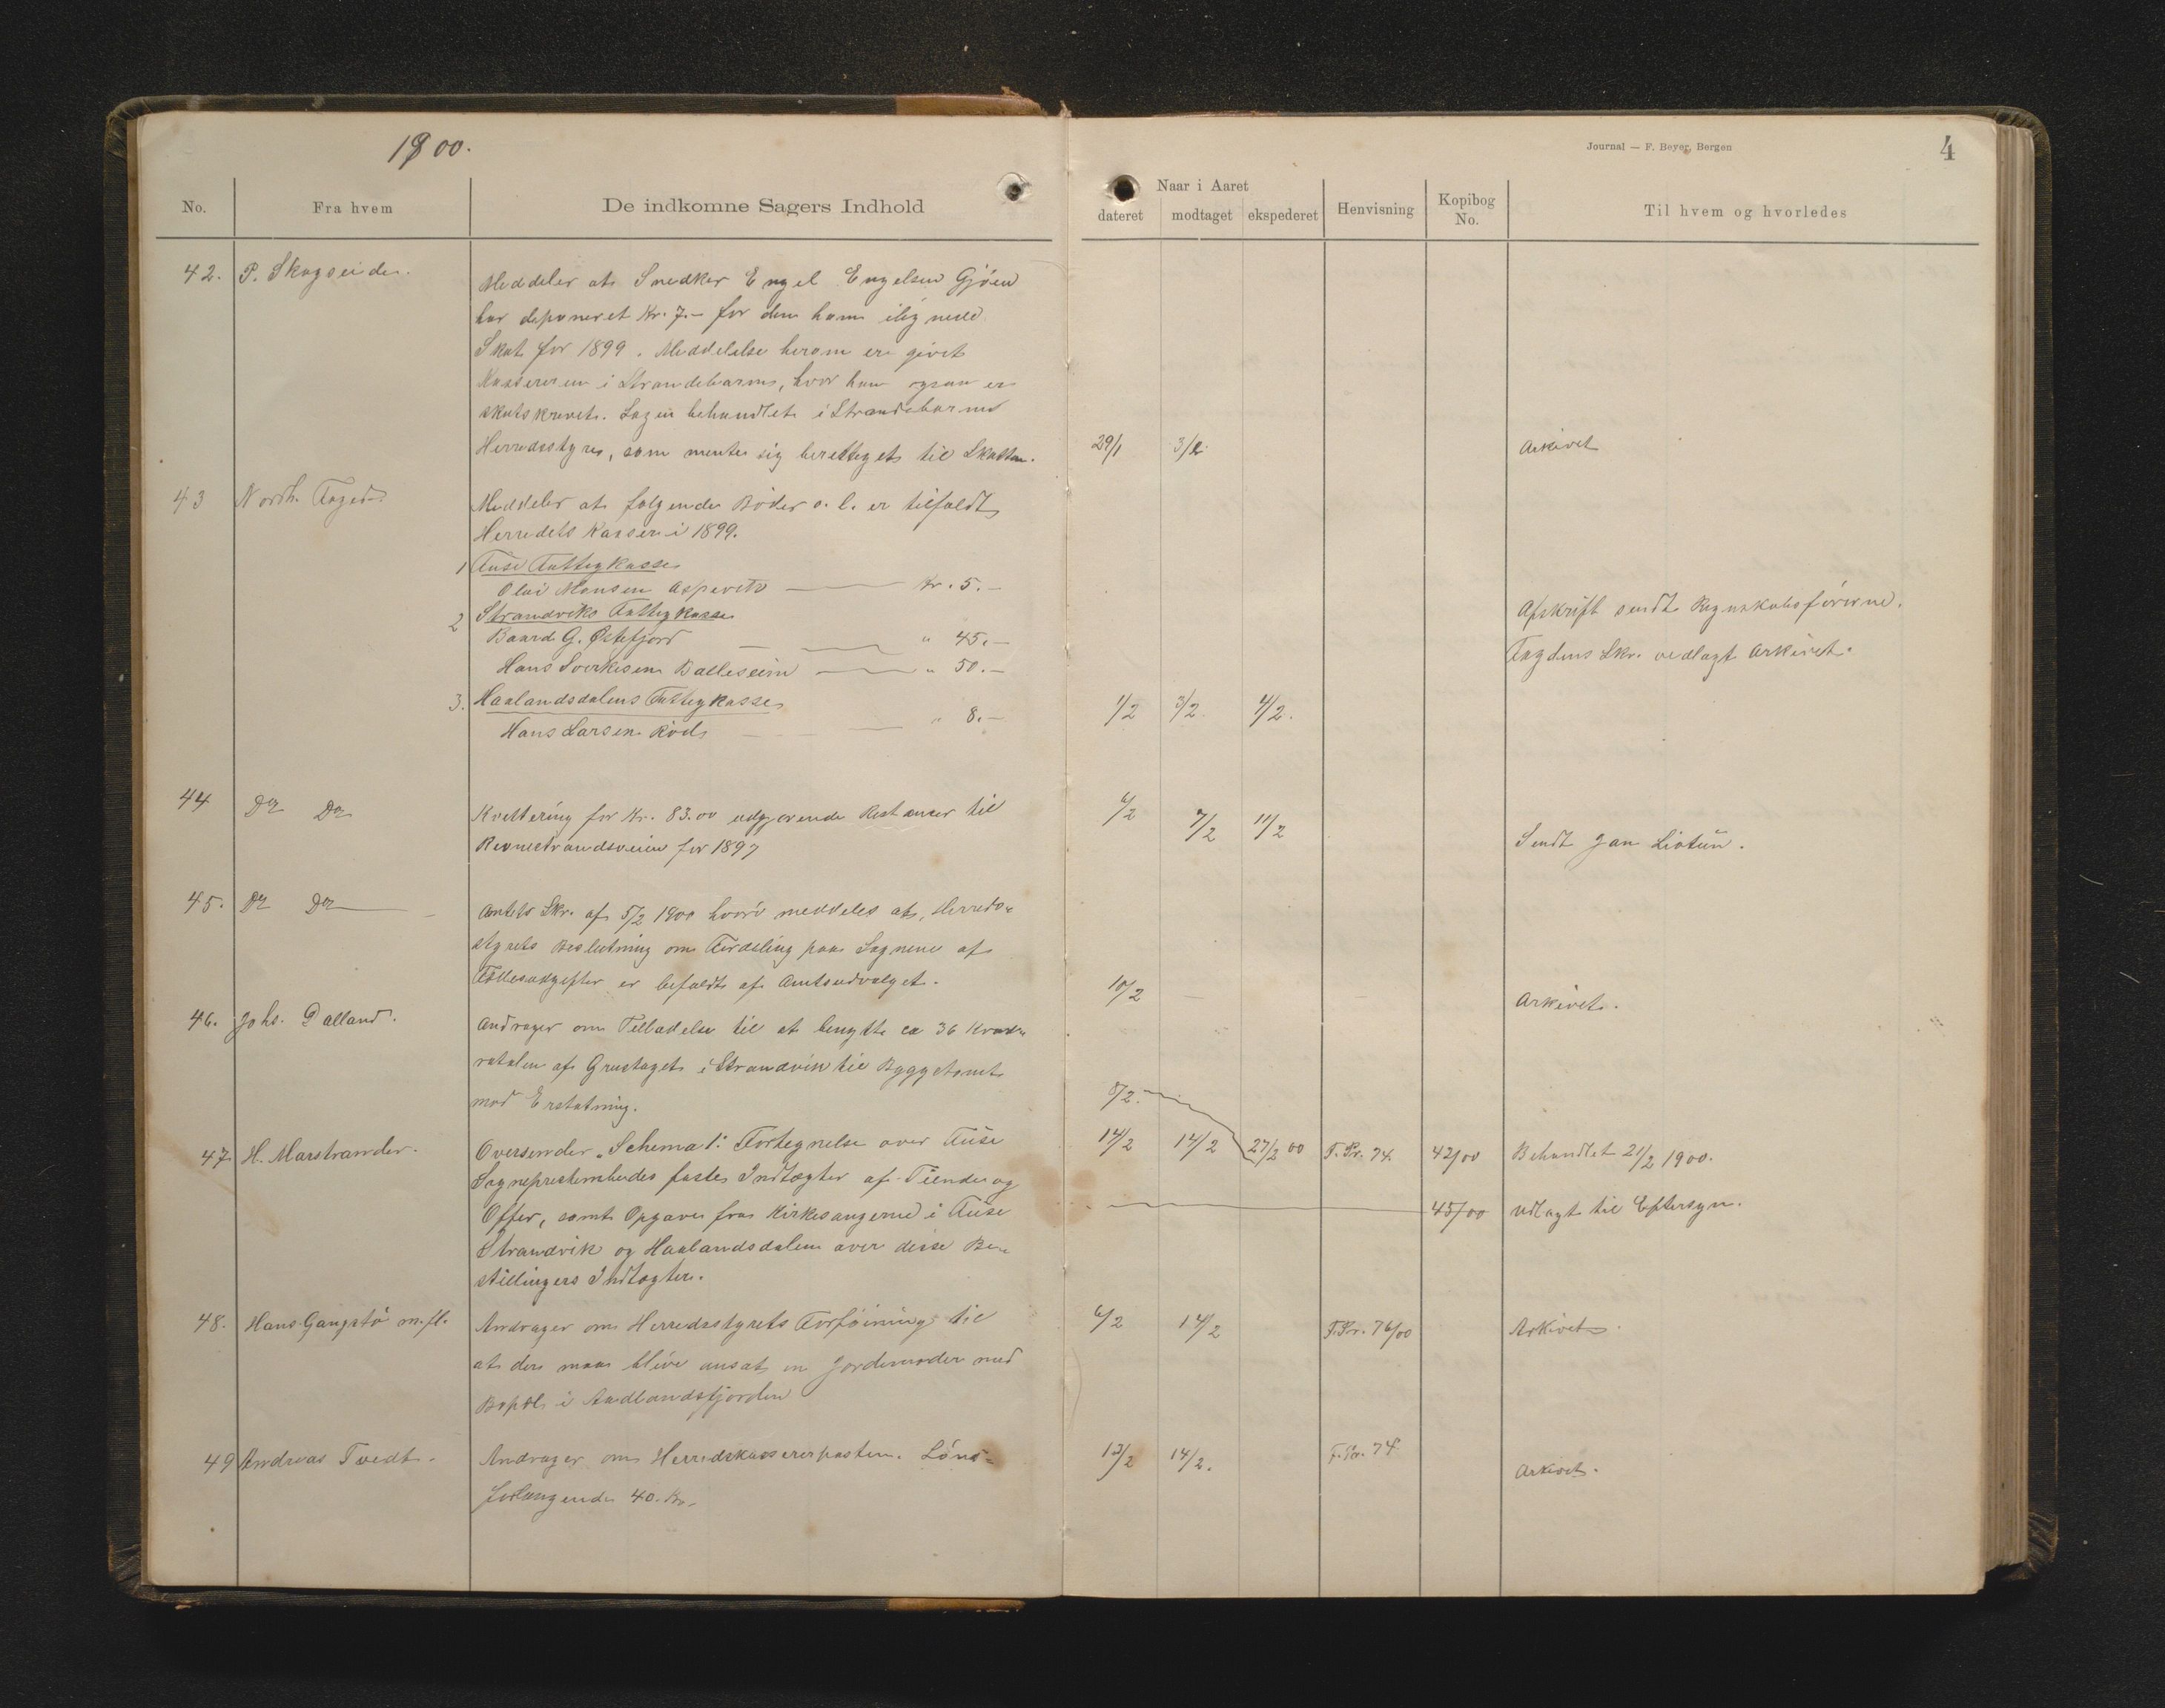 1900.
No.
Fra hvem
De indkomne Sagers Indhold
42. P. Skogseide.
Meddeler at Snedker Engel Engelsen Gjøen
har deponeret Kr. 7.- for den ham ilignede
Skat for 1899. Meddelelse herom er givet
Kassereren i Strandebarm, hvor han ogsaa er
skatskrevet. Sagen behandlet i Strandebarms
Herredsstyre, som mente sig berettiget til Skatten.
43 Nordh. Foged.
Meddeler at følgende Bøder o. l. er tilfaldt
Herredets Kasser i 1899.
1 Fuse Fattigkasse
Olai Monsen Aspevik Kr. 5.-
2 Strandviks Fattigkasse
Baard G. Østefjord " 45.-
Hans Sverkesen Balleseim " 50.-
3. Haalandsdalens Fattigkasse
Hans Larsen Röd " 8.-
44 Do Do
Kvittering for Kr. 83.00 udgjørende Restancer til
Revnestrandsveien for 1897
45. Do Do
Amtets Skr. af 5/2 1900 hvori meddeles at Herreds-
styrets Beslutning om Fordeling paa Sognene af
Fællesudgifter er bifaldt af Amtsudvalget.
46. Johs. Dalland.
Andrager om Tilladelse til at benytte ca 36 Kvad-
ratalen af Grustaget i Strandvik til Byggetomt
mod Erstatning.
47. H. Marstrander.
Oversender "Schema 1: Fortegnelse over Fuse
Sognepræstembedes faste Indtægter af Tiende og
Offer, samt Opgave fra Kirkesangerne i Fuse
Strandvik og Haalandsdalen over disse Be-
stillingers Indtægter.
48. Hans Gangstø m.fl.
Andrager om Herredsstyrets Forføining til
at der maa blive ansat en Jordemoder med
Bopæl i Aadlandsfjorden
49 Andreas Tvedt.
Andrager om Herredskassererposten. Løns-
forlangende 40. Kr.
Journal — F. Beyer, Bergen
4
Naar i Aaret
dateret
modtaget
ekspederet
Henvisning
Kopibog
No.
Til hvem og hvorledes
29/1 3/2 Arkivet
Afskrift sendt Regnskabsførerne.
Fogdens Skr. vedlagt Arkivet.
1/2 3/2. 4/2.
6/2 7/2 11/2 Sendt Jan Liatun.
10/2 Arkivet.
8/2.
14/2 14/2 27/2 00 F.Pr. 74. 42/00 Behandlet 21/2 1900.
45/00 Udlagt til Eftersyn.
6/2 14/2 F.Pr. 76/00 Arkivet.
13/2 14/2. F.Pr. 74. Arkivet.